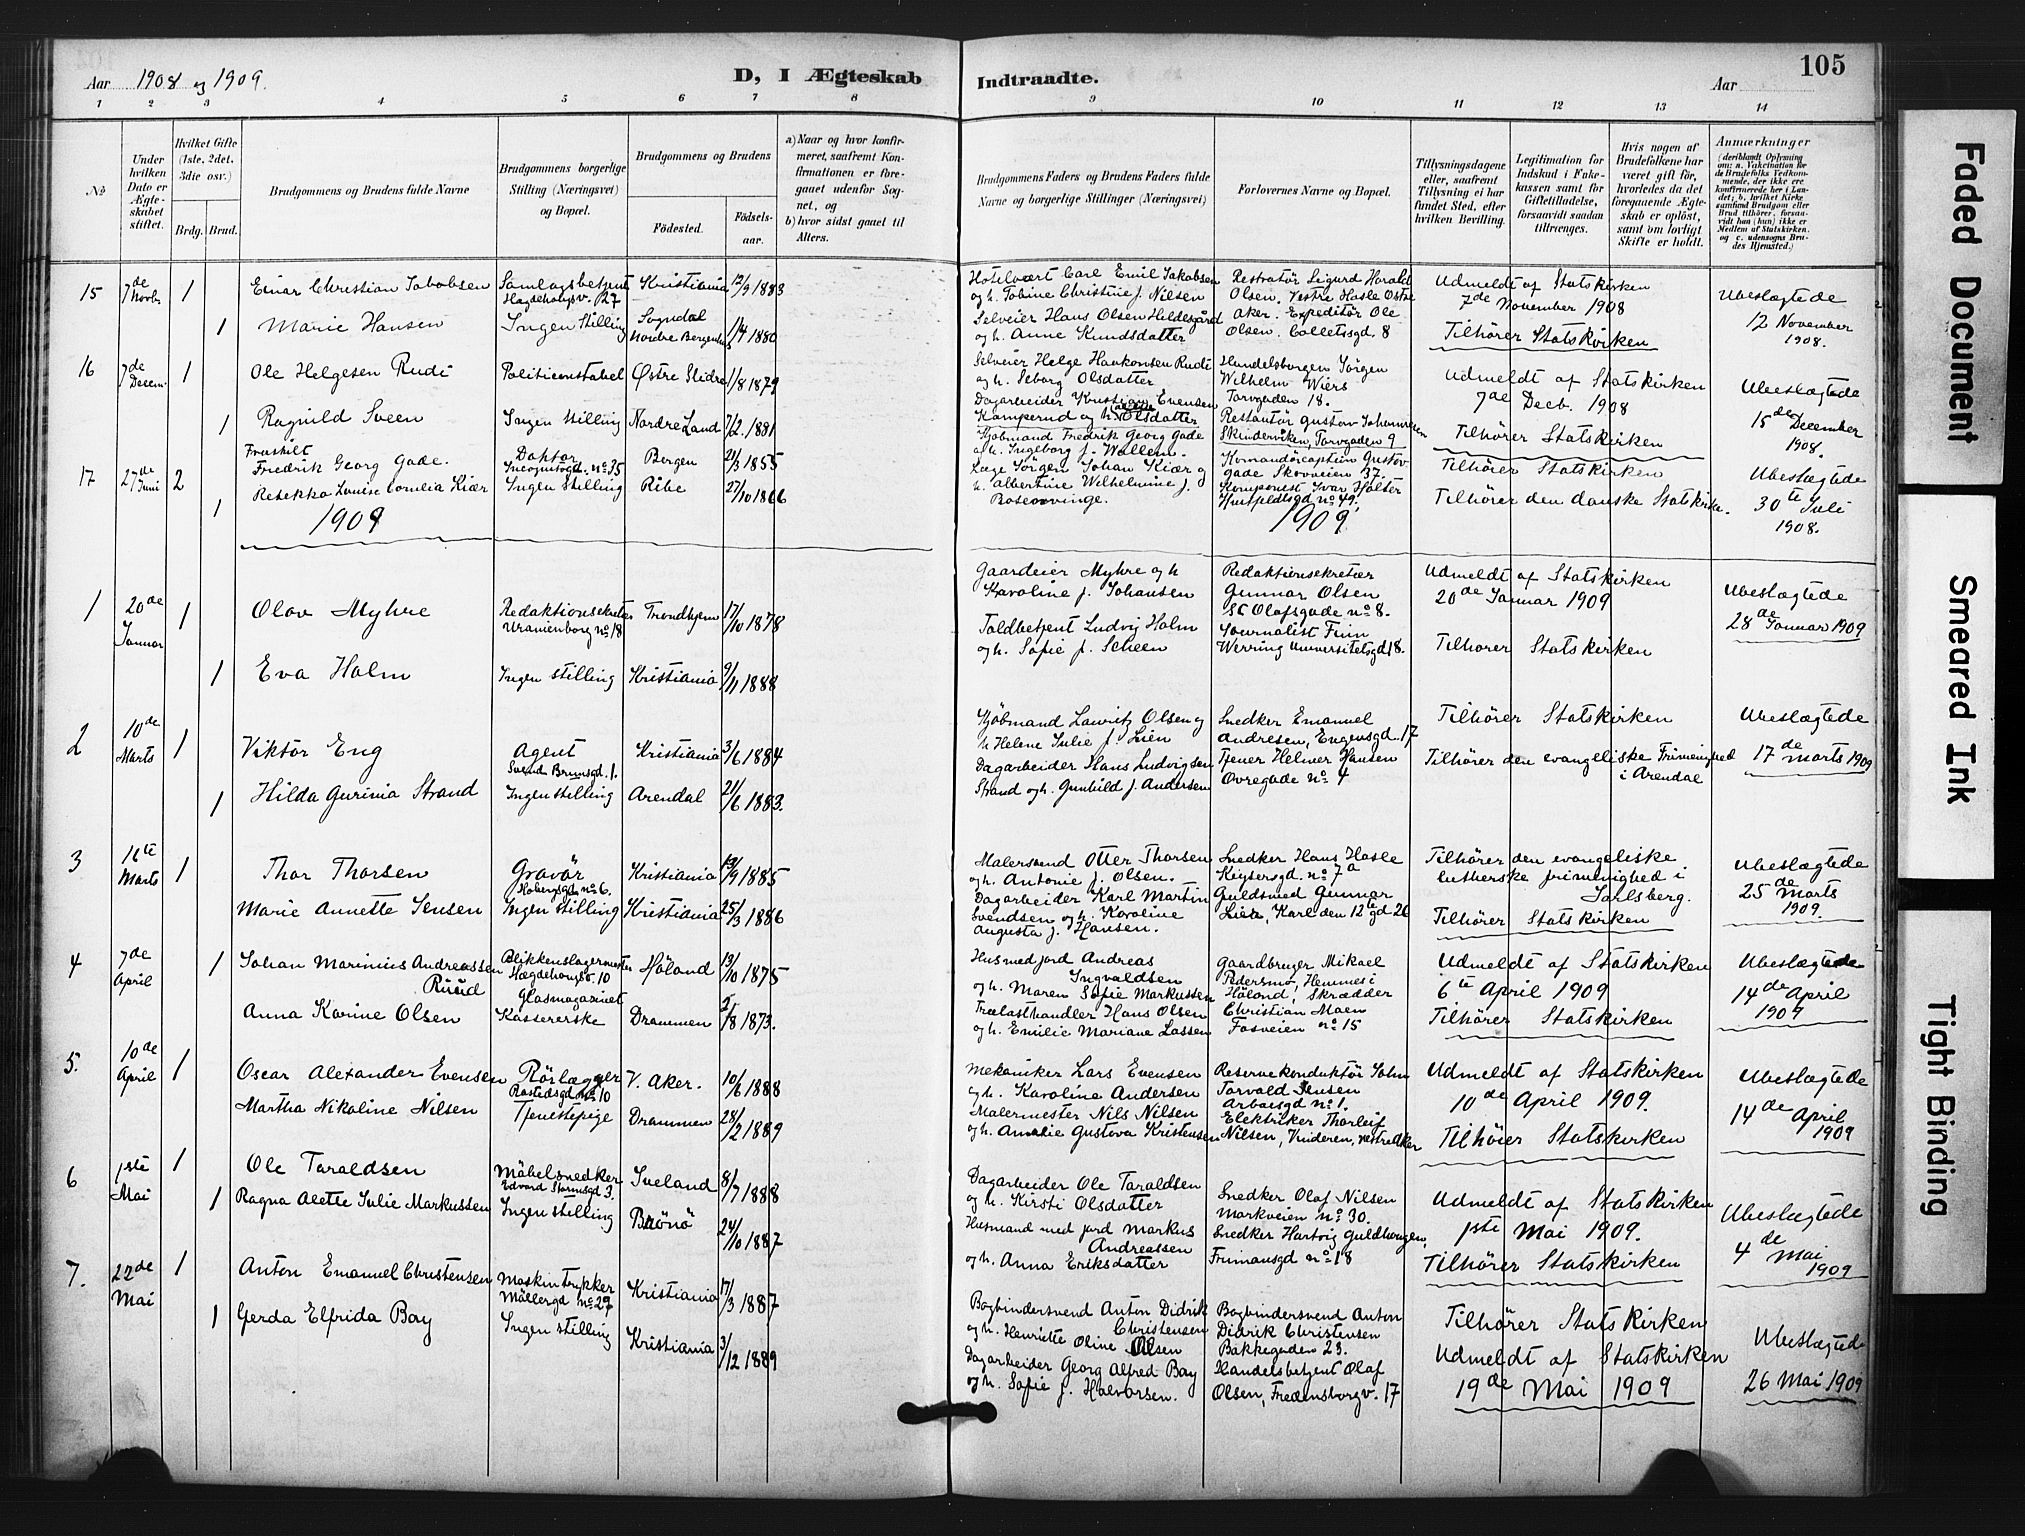 105
Aar 1908 og 1909.
D, I Ægteskab Indtraadte.
Aar
1 2 3 4 5 6 7 8 9 10 11 12 13 14
No.
Under hvilken Dato er Ægteskabet stiftet.
Hvilket Gifte (1ste, 2det, 3die osv.)
Brdg. Brud.
Brudgommens og Brudens fulde Navne
Brudgommens borgerlige Stilling (Næringsvei) og Bopæl.
Brudgommens og Brudens
Fødested. Fødselsaar.
a) Naar og hvor konfirmeret, saafremt Konfirmationen er foregaaet udenfor Sognet, og
b) hvor sidst gaaet til Alters.
Brudgommens Faders og Brudens Faders fulde Navne og borgerlige Stillinger (Næringsvei)
Forlovernes Navne og Bopæl.
Tillysningsdagene eller, saafremt Tillysning ei har fundet Sted, efter hvilken Bevilling.
Legitimation for Indskud i Enkekassen samt for Giftetilladelse, forsaavidt saadan tiltrænges.
Hvis nogen af Brudefolkene har været gift før, hvorledes da det foregaaende Ægteskab er opløst, samt om lovligt Skifte er holdt.
Anmærkninger
15 7de Novbr 1 Einar Christian Jakobsen Samlagsbetjent Hægdehaugsv. 27 Kristiania 12/9 1883
1 Marie Hansen Ingen Stilling Sogndal Nordre Bergenhus 1/4 1880
Hotelvært Carl Emil Jakobsen
og h. Tobine Christine f. Nilsen
Selveier Hans Olsen Heldesgård
og h. Anne Knudsdatter
Restratør Sigurd Harald
Olsen. Vestre Hasle Østre
Aker. Expeditør Ole
Olsen. Colletsgd. 8
Udmeldt af Statskirken
7de November 1908
Tilhører Statskirken
Ubeslægtede
12 November
1908.
16 7de Decem. 1 Ole Helgesen Rudi Politikonstabel Østre Slidre 1/8 1879
1 Ragnild Sveen Ingen Stilling Nordre Land 7/2 1881
Selveier Helge Haakonsen Rudi
og h. Seborg Olsdatter
Dagarbeider Kristian Evensen
Kamperud og h. Olsdatter
Handelsborgen Jörgen
Wilhelm Wiers
Torvgaden 18.
Restautör Gustav Johannesen
Skinderviken, Torvgaden 9
Udmeldt af Statskirken
7de Decb. 1908
Tilhører Statskirken
Ubeslægtede
15de December
1908.
17 27de Juni 2 Fraskilt
Fredrik Georg Gade. Doktor Incognitogd. No 35 Bergen 21/3 1855
1 Rebekka Louise Cornelia Kiær Ingen Stilling Ribe 27/10 1866
Kjøbmand Fredrik Georg Gade
og h. Ingeborg f. Wallem.
Læge Jørgen Johan Kiær og
h. Albertine Wilhelmine f.
Rosenvinge.
Komandörcaptein Gustav
Gade Skovveien 37.
Komponist Ivar Holter
Huitfeldtsgd No 49.
Tilhører Statskirken
Tilhører den danske Statskirke.
Ubeslægtede
30te Juli
1908.
1909 1909
1 20de Januar 1 Olav Myhre Redaktionsekretær Uranienborg No 18 Trondhjem 17/10 1878
1 Eva Holm Ingen stilling Kristiania 9/11 1888
Gaardeier Myhre og h
Karoline f. Johansen
Toldbetjent Ludvig Holm
og h. Sofie f. Scheen
Redaktionsekretær
Gunnar Olsen
St Olafsgade No 8.
Journalist Finn
Werring Universitetsgd 18.
Udmeldt af Statskirken
20de Januar 1909
Tilhører Statskirken
Ubeslægtede
28de Januar 1909
2 10de Marts 1 Viktor Eng Agent Svend Brunsgd. 1. Kristiania 3/6 1884
1 Hilda Gurinia Strand Ingen stilling Arendal 21/6 1883.
Kjøbmand Lauritz Olsen og
h Helene Julie f. Lien
Dagarbeider Hans Ludvigsen
Strand og h. Gunhild f. Andersen
Snedker Emanuel
Andresen, Eugensgd. 17
Tjener Helmer Hansen
Øvregade No 4
Tilhører Statskirken
Tilhører den evangeliske Frimenighed
i Arendal
Ubeslægtede
17de marts 1909
3 16te Marts 1 Thor Thorsen Gravör Hobergsgd No 6. Kristiania 19/9 1885
Marie Annette Jensen Ingen stilling Kristiania 25/3 1886
Malersvend Otter Thorsen
og h. Antonie f. Olsen.
Dagarbeider Karl Martin
Svendsen og h. Karoline
Augusta f. Hansen.
Snedker Hans Hasle
Keysersgd. No 7a
Guldsmed Gunnar
Lie, Karl den 12te gd 26
Tilhører den evangeliske
lutherske frimenighed i
Jarlsberg.
Tilhører Statskirken
Ubeslægtede
25de Marts
1909.
4 7de April 1 Johan Marinius Andreassen Ruud Blikkenslagermester Hægdehougsv. 10 Høland 13/10 1875
Anna Karine Olsen Glasmagasinet Kassererske Drammen 2/8 1873.
Husmedjord Andreas
Ingvaldsen
og h. Maren Sofie Markussen
Trælasthandler Hans Olsen
og h. Emilie Mariane Lassen
Gaardbruger Mikael
Pedersmo, Hemmes i
Høland, Skrædder
Christian Moen
Fosveien No 15
Udmeldt af Statskirken
6te April 1909
Tilhører Statskirken
Ubeslægtede
14de April
1909
5. 10de April 1 Oscar Alexander Evensen Rörlægger Rostedsgd No 10 V. Aker. 10/6 1888
Martha Nikoline Nilsen Tjenestepige Drammen 28/2 1889
Mekaniker Lars Evensen
og h. Karoline Andersen
Malermester Nils Nilsen
og h. Amalie Gustova Kristensen
Reservekonduktör John
Torvald Jensen
Arbeisgd No 1.
Elektriker Thorleif
Nilsen, Vinderen, Vestre Aker
Udmeldt af Statskirken
10de April 1909.
Tilhører Statskirken
Ubeslægtede
14de April
1909
6 1ste Mai 1 Ole Taraldsen Möbelsnedker Edvard Stormsgd 3. Iveland 8/7 1888
1 Ragna Alette Julie Markussen Ingen stilling Brönö 24/10 1887
Dagarbeider Ole Taraldsen
og h. Kirsti Olsdatter
Husmand med jord Markus
Andreassen
og h. Anna Eriksdatter
Snedker Olaf Nilsen
Markveien No 30.
Snedker Hartvig Guldborgen,
Frimansgd No 18
Udmeldt af Statskirken
1ste Mai 1909.
Tilhører Statskirken
Ubeslægtede
4de Mai
1909
7. 22de Mai 1 Anton Emanuel Christensen Maskintrykker Möllergd No 29 Kristiania 17/3 1887
1 Gerda Elfrida Bay Ingen stilling Kristiania 3/12 1889
Bogbindersvend Anton Didrik
Christensen
og h. Henriette Oline Olsen
Dagarbeider Georg Alfred Bay
og h. Sofie f. Halvorsen.
Bogbindersvend Anton
Didrik Christensen
Bakkegaden 23.
Handelsbetjent Olaf
Olsen, Fredensborgv. 17
Tilhører Statskirken
Udmeldt af Statskirken
19de Mai 1909
Ubeslægtede
26 Mai 1909
Faded Document
Smeared Ink
Tight Binding